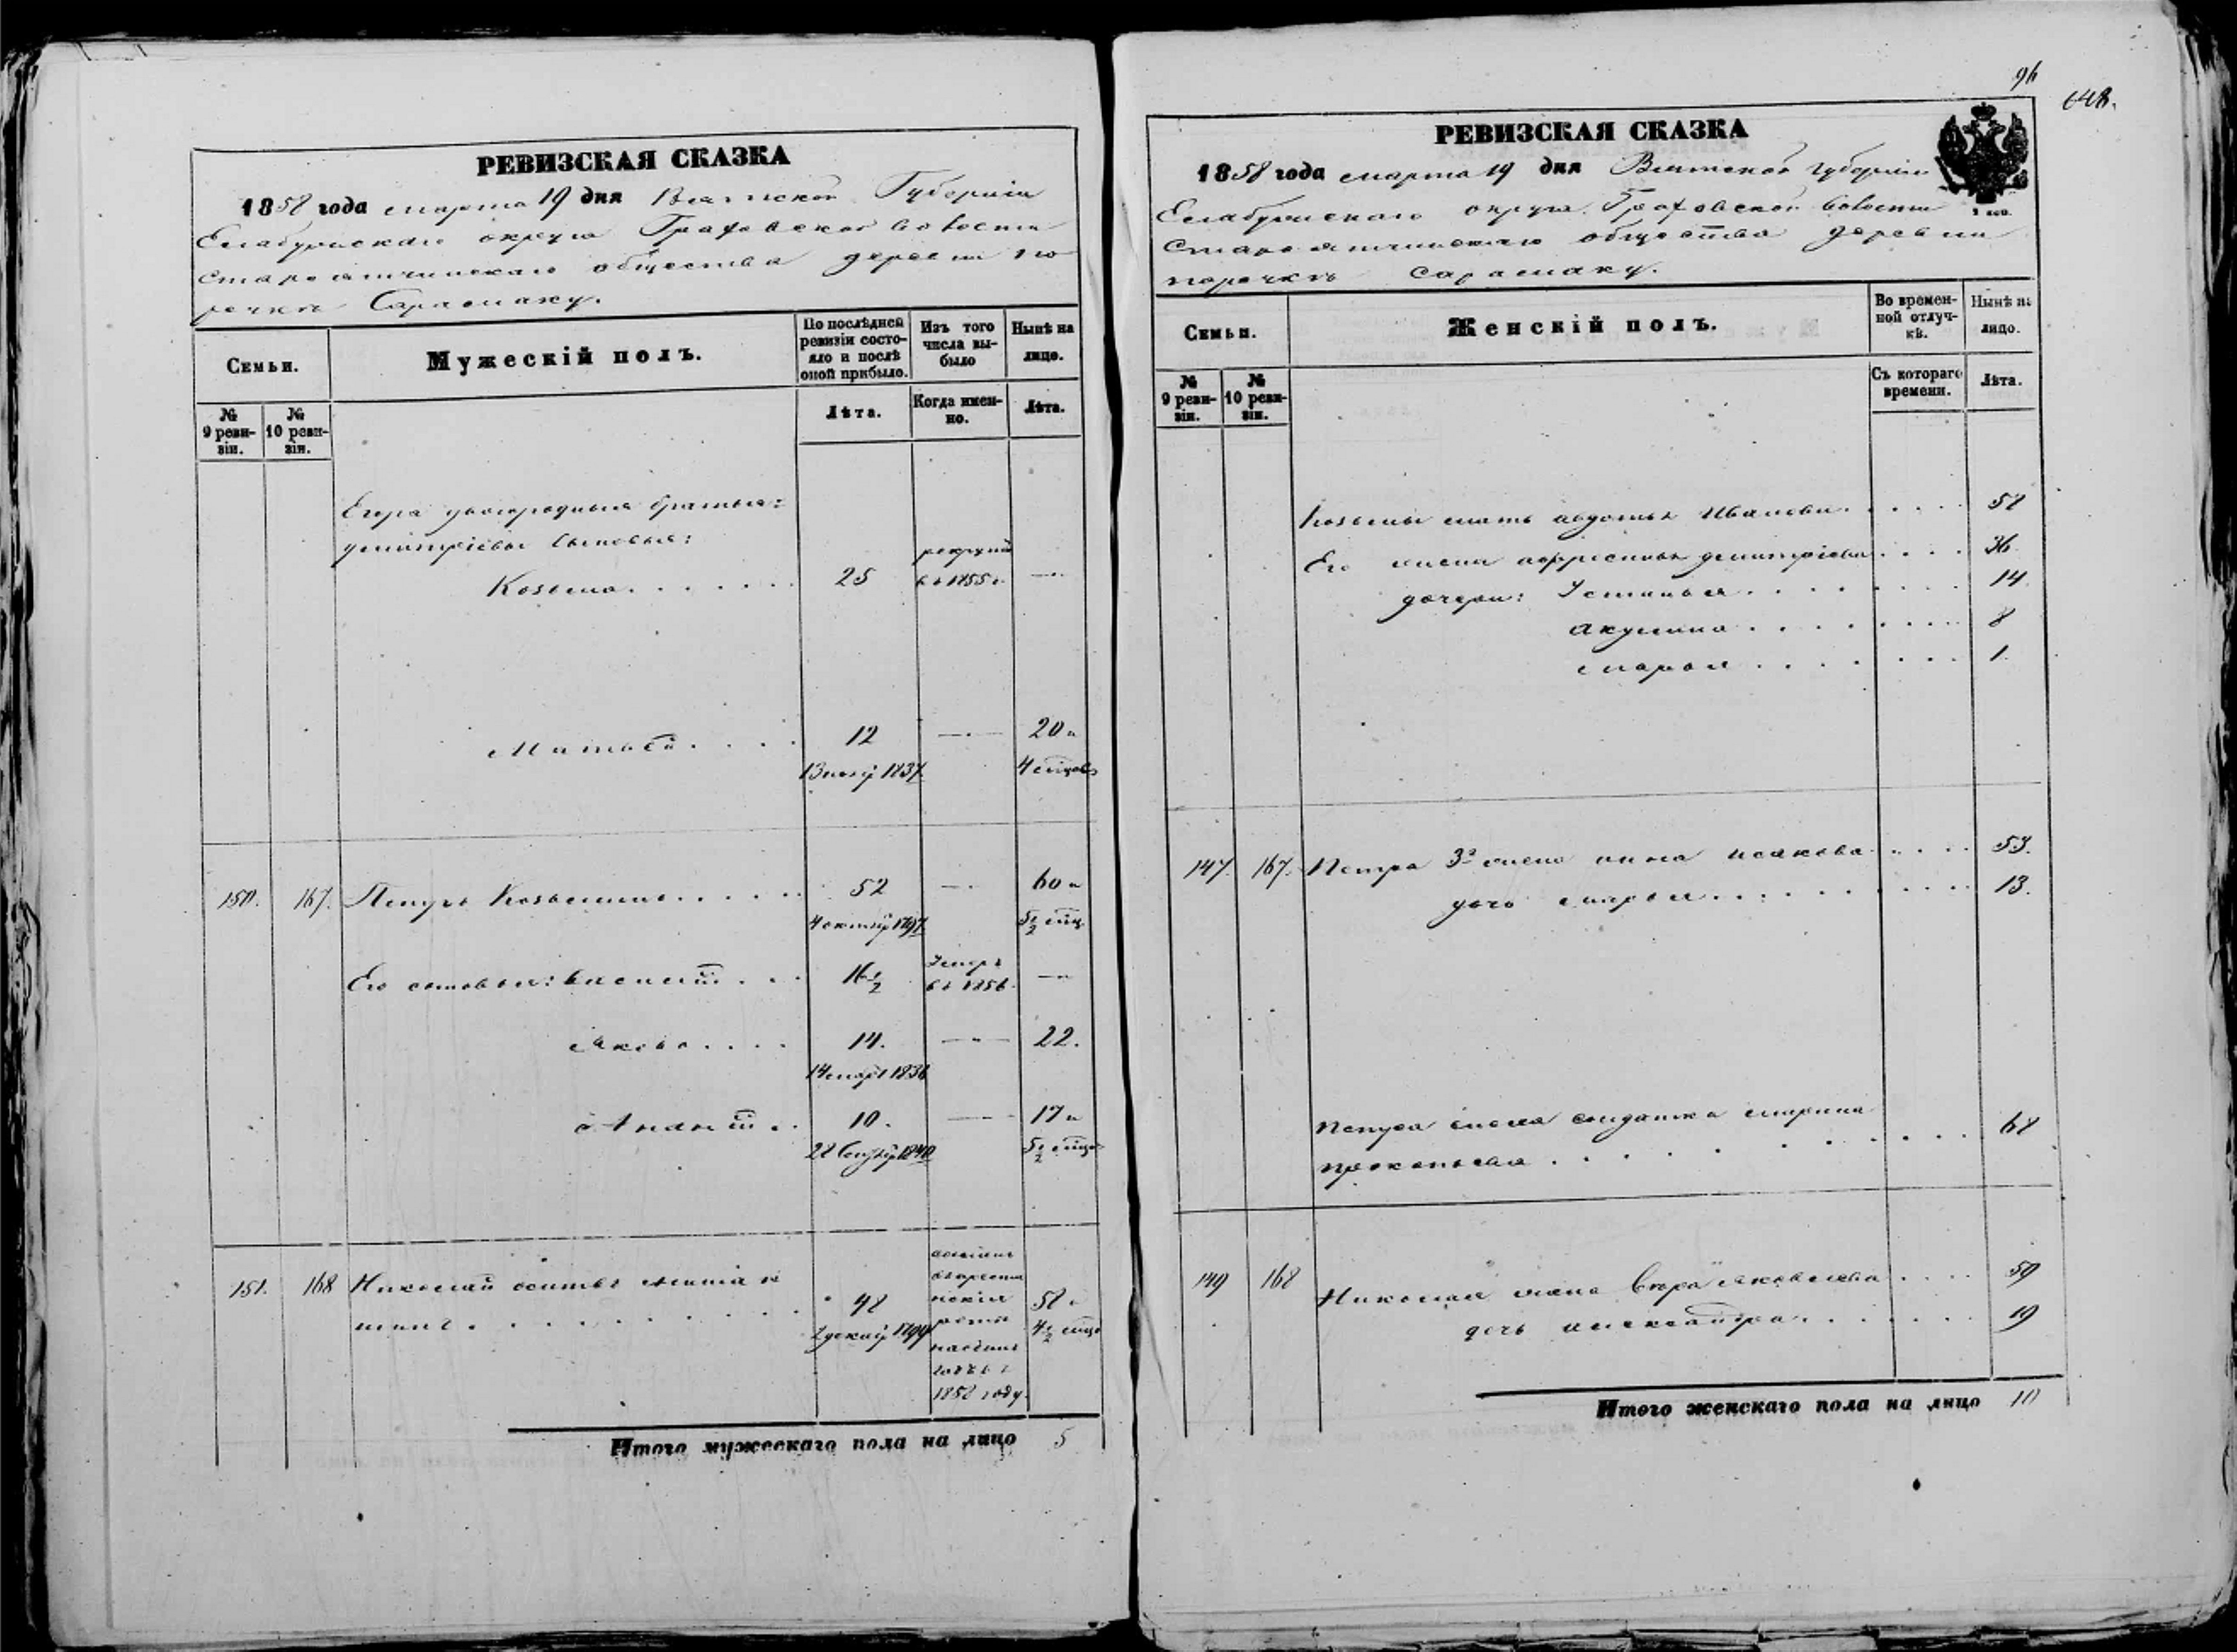 РЕВИЗСКАЯ СКАЗКА
1858 года марта 19 дня Вятской Губерніи
Елабужскаго округа Граховской волости
Староятчинскаго общества деревни по
речкѣ Сарамаку.
Семьи.
Мужескій полъ.
По послѣдней ревизіи состояло и послѣ оной прибыло.
Изъ того числа выбыло
Нынѣ на лицо.
№ 9 ревизіи.
№ 10 ревизіи.
Лѣта.
Когда именно.
Лѣта.
Егора двоюродныя братья:
Дмитріевы сыновья:
рекрутъ
Козьма . . . . . . 25 въ 1855 г. —
Матвей . . . . 12 — 20 и
13 нояб 1837 4 мѣсяцов
150. 167. Петръ Козьминъ . . . . . 52 — 60 и
4 октяб 1797 5½ мѣц
Его сыновья: Василій . . . 16½ Умеръ въ 1856 —
Яковъ . . . . 14. — 22.
14 март 1836
Ананій . . 10. — 17 и
28 сентяб 1840 5½ мѣц
151. 168 Николай Осиповъ
48
58 и
4½ мѣц
декаб 1799
1858 году.
Итого мужескаго пола на лицо 5
96
648.
РЕВИЗСКАЯ СКАЗКА
1858 года марта 19 дня Вятской губерніи
Елабужскаго округа Граховской волости
Староятчинскаго общества деревни
поречкѣ Сарамаку.
Семьи.
Женскій полъ.
Во временной отлучкѣ.
Нынѣ на лицо.
№ 9 ревизіи.
№ 10 ревизіи.
Съ котораго времени.
Лѣта.
Козьмы мать Авдотья Иванова . . . . . 58
Его жена Афросинья Дмитріева . . . . 36
дочери: Устинья . . . . . . . 14.
Акулина . . . . . . . . 8
Марья . . . . . . . 1.
147. 167. Петра 3я жена Анна Исакова . . . . 53.
дочь Марья . . . . . . . . . . 13.
Петра
солдатка Марина
Прокопьева . . . . . . . . . . 68
149 168 Николая жена Вѣра Яковлева . . . . 59
дочь Александра . . . . . . 19
Итого женскаго пола на лицо 10